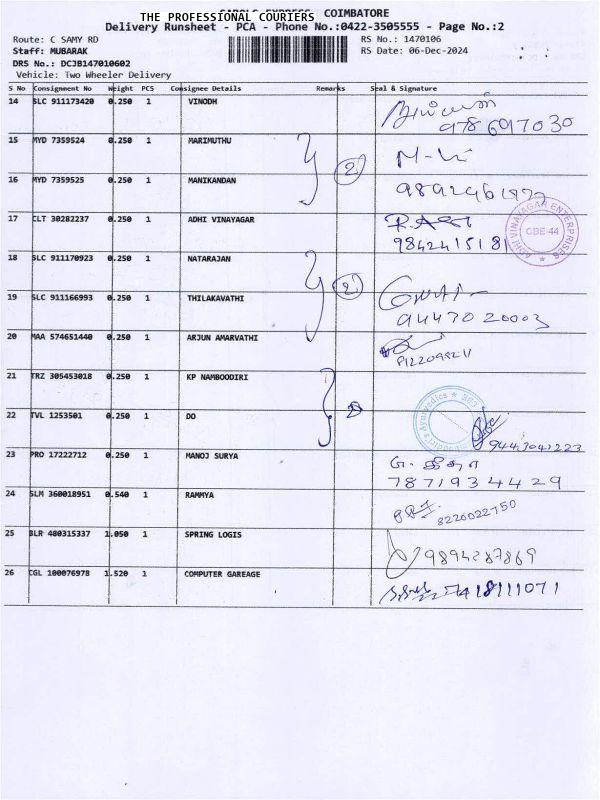 THE PROFESSIONAL COURIERS
EXPRESS COIMBATORE
Delivery Runsheet - PCA - Phone No.:0422-3505555 - Page No.:2
Route: C SAMY RD RS No.: 1470106
Staff: MUBARAK RS Date: 06-Dec-2024
DRS No.: DCJB147010602
Vehicle: Two Wheeler Delivery
S No Consignment No Weight PCS Consignee Details Remarks Seal & Signature
14 SLC 911173420 0.250 1 VINODH
15 MYD 7359524 0.250 1 MARIMUTHU
16 MYD 7359525 0.250 1 MANIKANDAN
2
17 CLT 30282237 0.250 1 ADHI VINAYAGAR
9842415181
ADHI VINAYAGAR ENTERPRISES
CBE-44
18 SLC 911170923 0.250 1 NATARAJAN
19 SLC 911166993 0.250 1 THILAKAVATHI
2
9447020003
20 MAA 574651440 0.250 1 ARJUN AMARVATHI
21 TRZ 305453018 0.250 1 KP NAMBOODIRI
22 TVL 1253501 0.250 1 DO
23 PRO 17222712 0.250 1 MANOJ SURYA
7871934429
24 SLM 360018951 0.540 1 RAMMYA
8226022750
25 BLR 480315337 1.050 1 SPRING LOGIS
9894287869
26 CGL 100076978 1.520 1 COMPUTER GAREAGE
7418111071